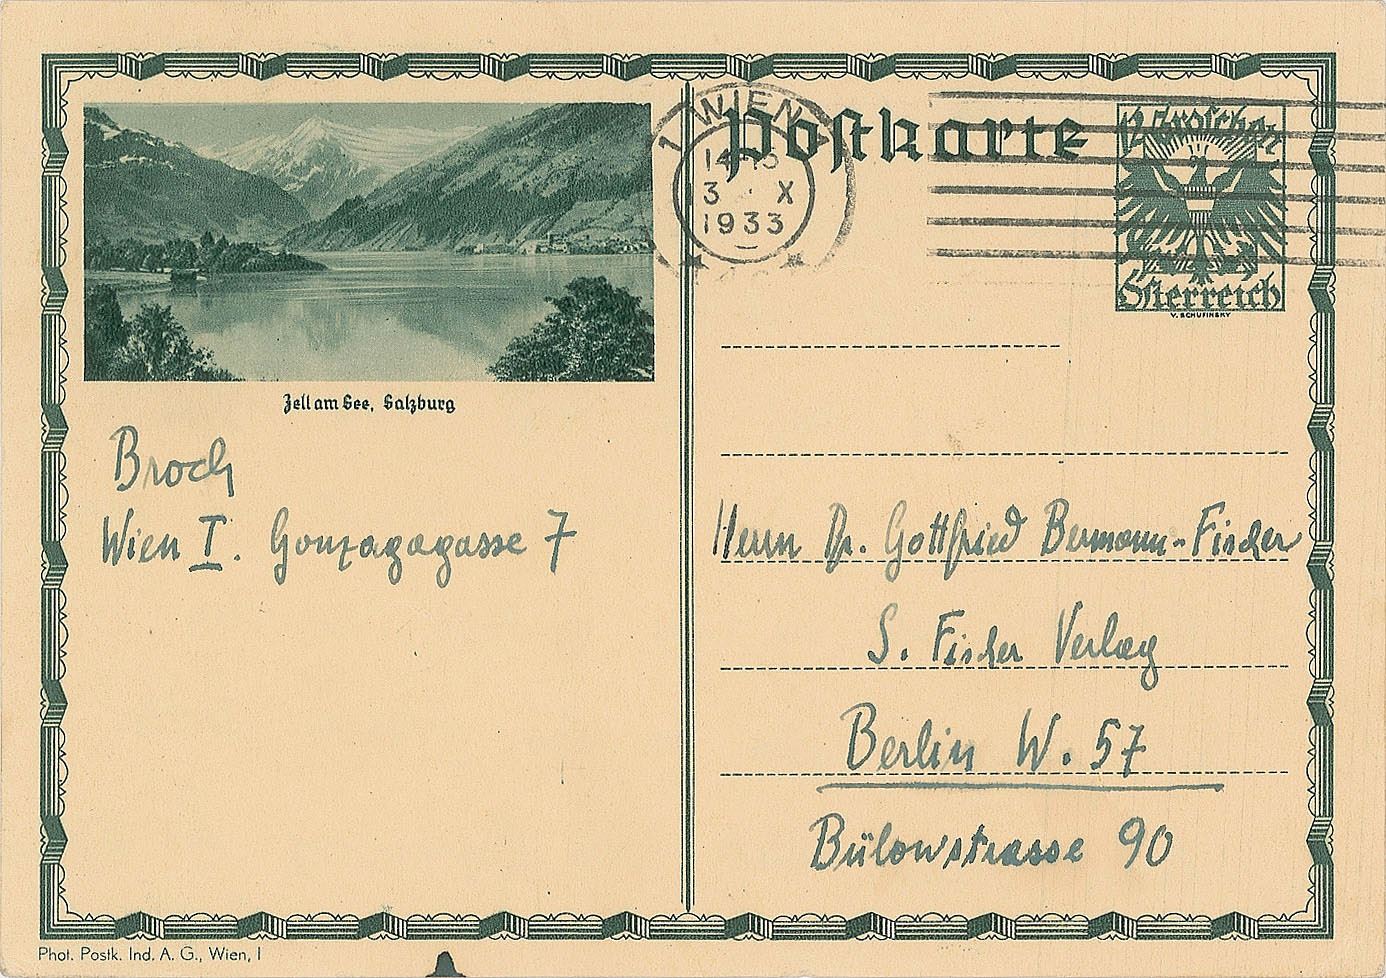 Postkarte
1 WIEN
3 · X
1933
12 Groschen
Österreich
V. SCHUFINSKY
Zell am See, Salzburg
Broch
Wien I. Gonzagagasse 7
Herrn Dr. Gottfried Bermann-Fischer
S. Fischer Verlag
Berlin W. 57
Bülowstrasse 90
Phot. Postk. Ind. A. G., Wien, I